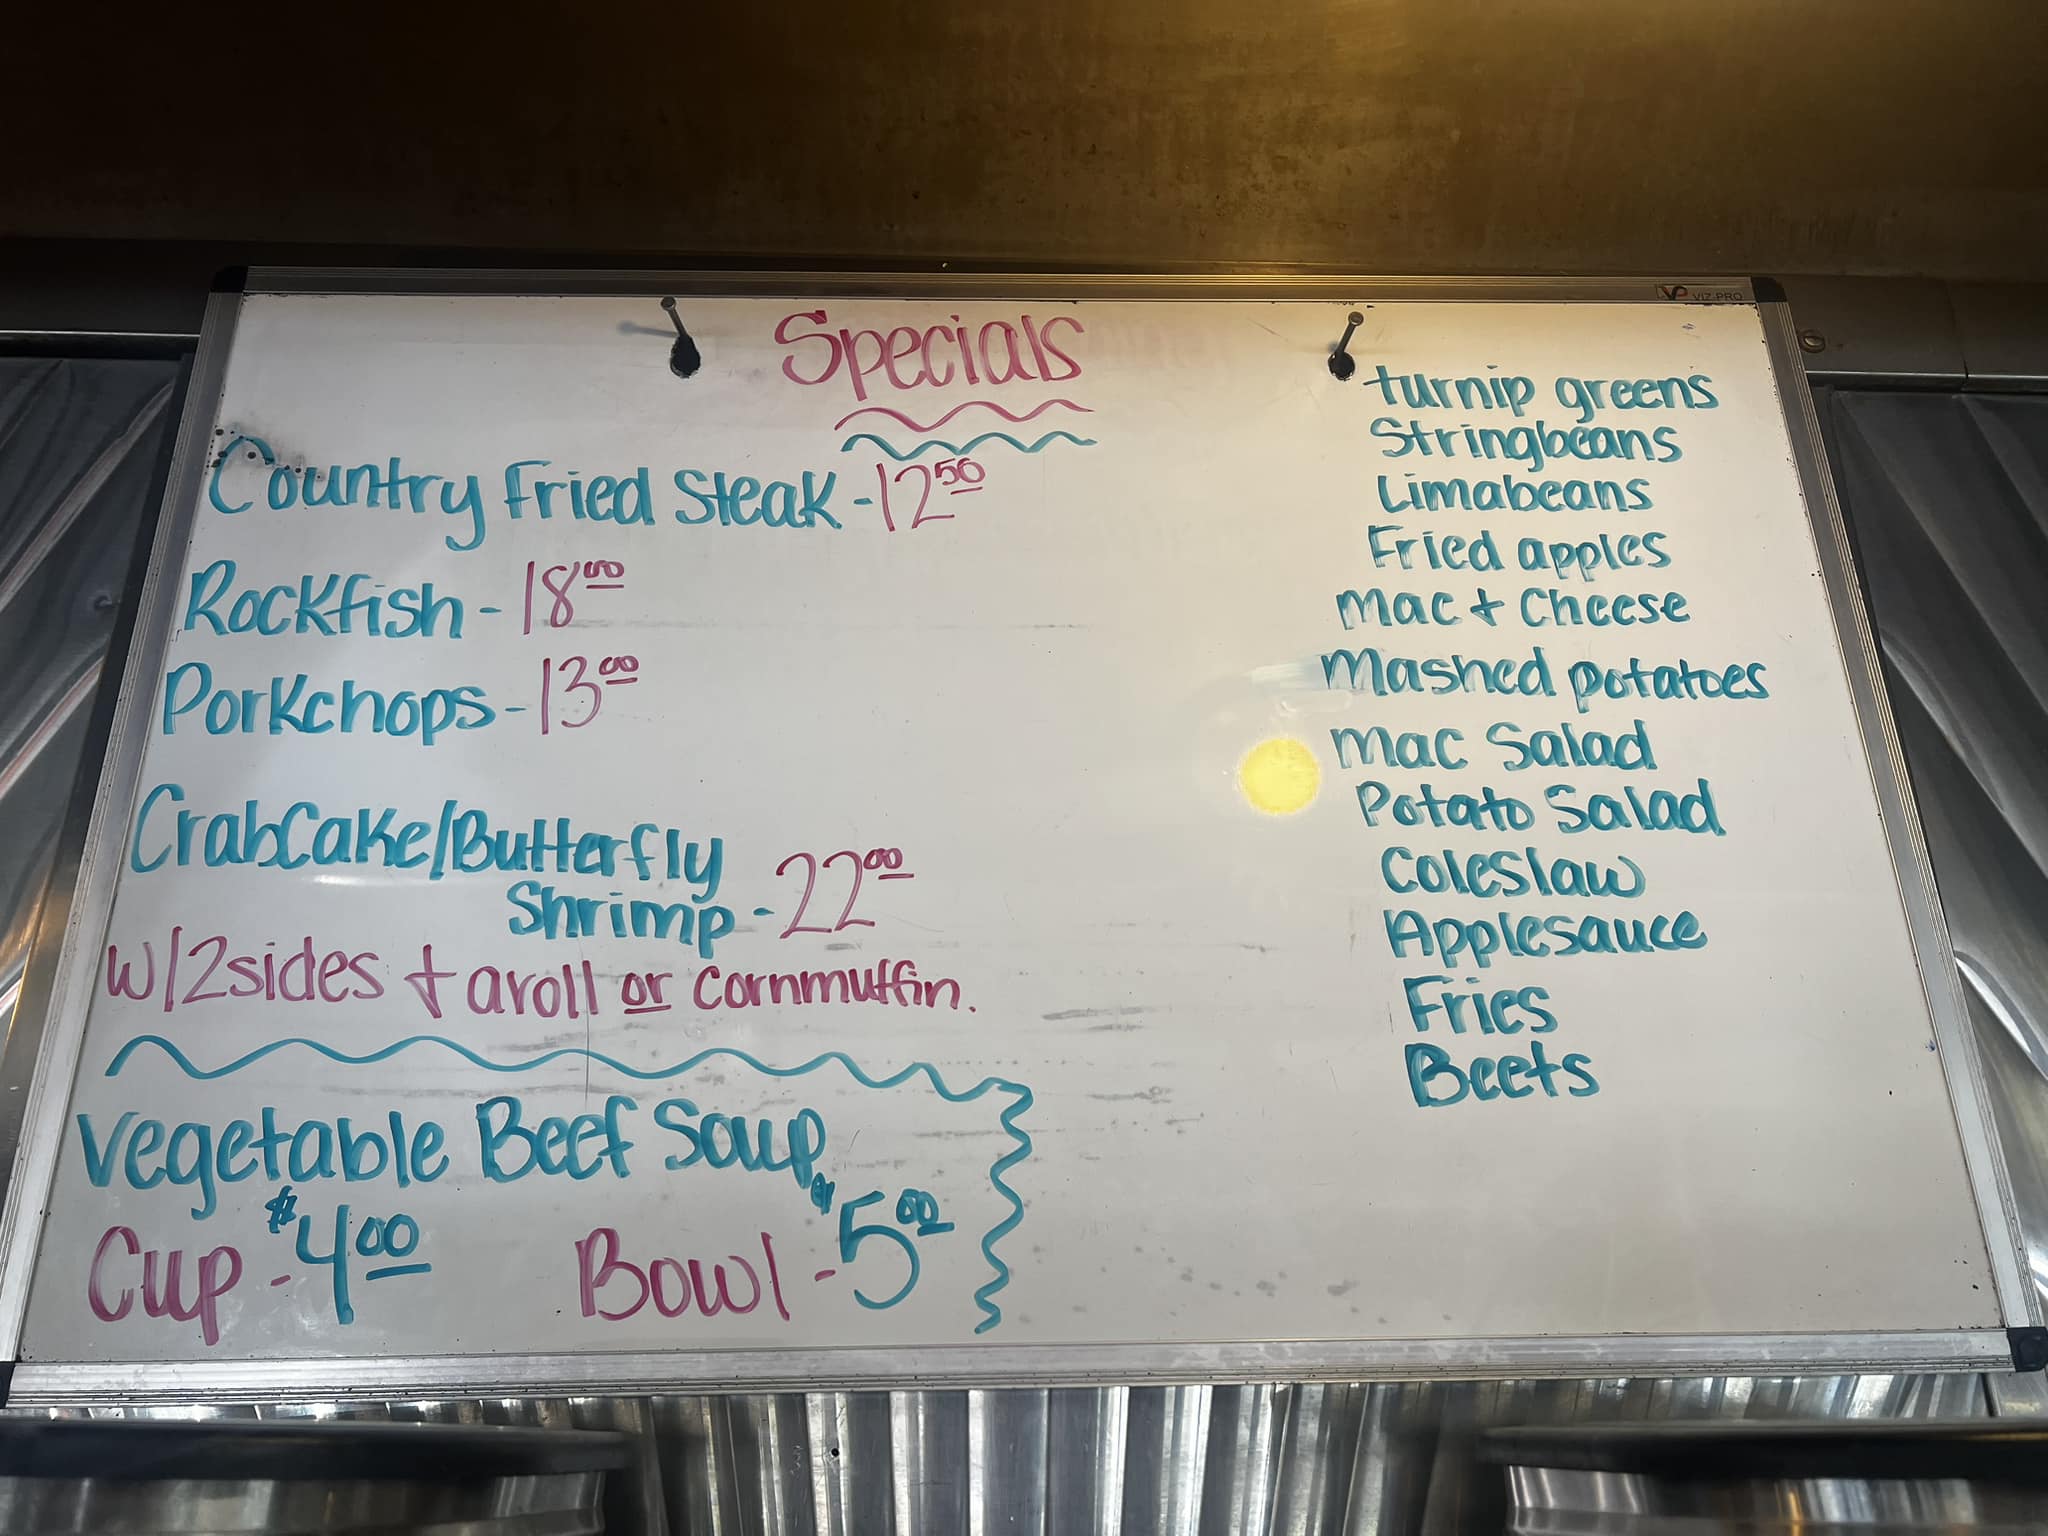 VIZ-PRO
Specials
Country Fried Steak - 12⁵⁰
Rockfish - 18⁰⁰
Porkchops - 13⁰⁰
CrabCake/Butterfly
Shrimp - 22⁰⁰
w/2sides + a roll or cornmuffin.
Vegetable Beef Soup
Cup - $4⁰⁰ Bowl - $5⁰⁰
turnip greens
Stringbeans
Limabeans
Fried apples
Mac + Cheese
Mashed potatoes
Mac Salad
Potato Salad
Coleslaw
Applesauce
Fries
Beets